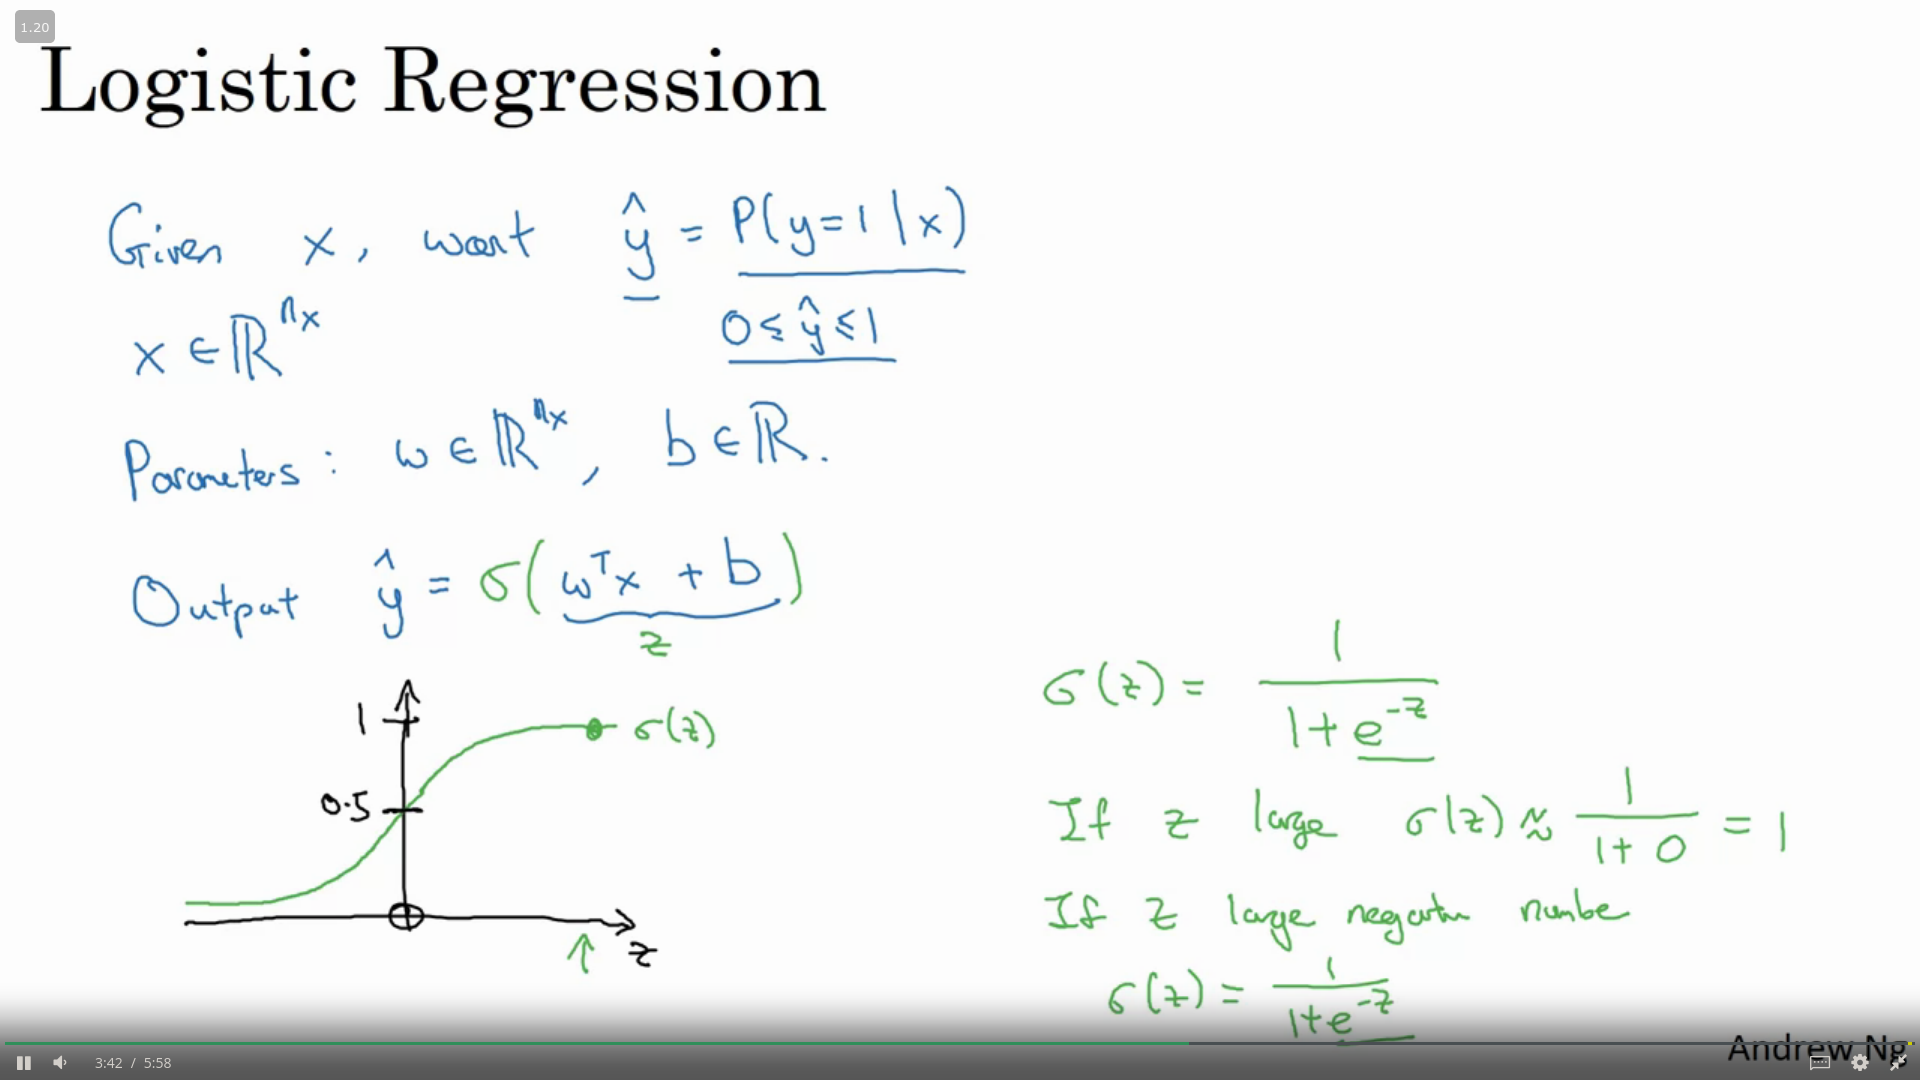 1.20
Logistic Regression
Given x, want ŷ = P(y=1|x)
x ∈ ℝⁿˣ 0 ≤ ŷ ≤ 1
Parameters: w ∈ ℝⁿˣ, b ∈ ℝ.
Output ŷ = σ(wᵀx + b)
z
1
σ(z)
0.5
z
σ(z) = 1 / (1 + e^(-z))
If z large σ(z) ≈ 1 / (1 + 0) = 1
If z large negative number
σ(z) = 1 / (1 + e^(-z))
Andrew Ng
3:42 / 5:58